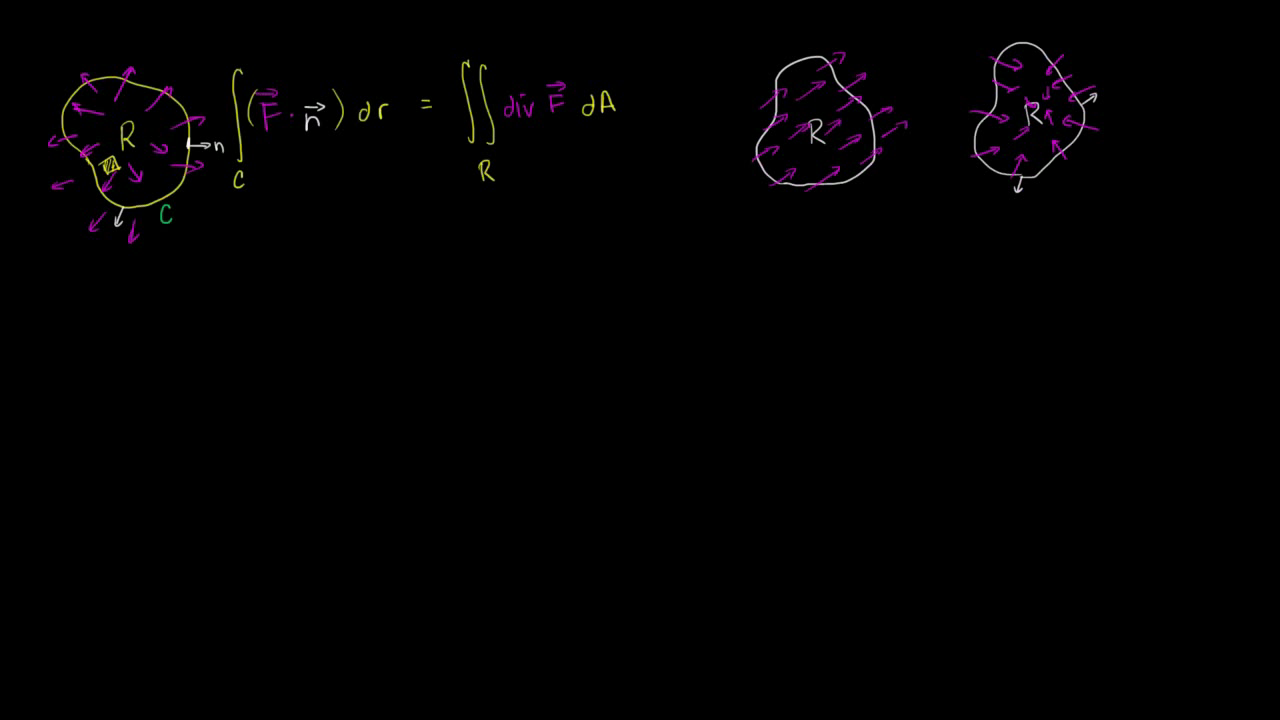 R n C
∫_C (F⃗ · n⃗) dr = ∬_R div F⃗ dA
R
R